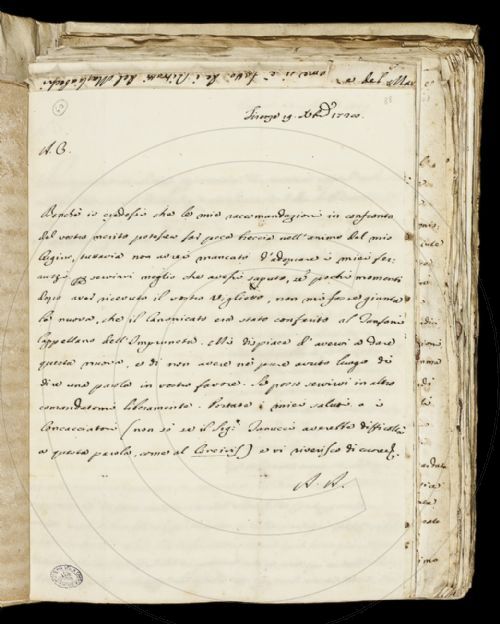 Firenze 19. Xbre 1720.
A. C.
Benchè io credessi che le mie raccomandazioni in confronto
del vostro merito potesser far poca breccia nell'animo del mio
Cugino, tuttavia non avrei mancato d'adoprare i miei
servirvi meglio che avessi saputo, se pochi momenti
dopo aver ricevuto il vostro viglietto, non mi fosse giunta
la nuova, che il Canonicato era stato conferito al
Cappellano dell'Impruneta. Mi dispiace d'avervi a dare
questa nuova, e di non avere nè pure avuto luogo di
dire una parola in vostro favore. Se posso servirvi in altro
comandatemi liberamente. Portate i miei saluti a i
(non so se il Sigr. avrebbe difficoltà
a questa parola, come al ) e vi riverisco di cuore.
A. A.